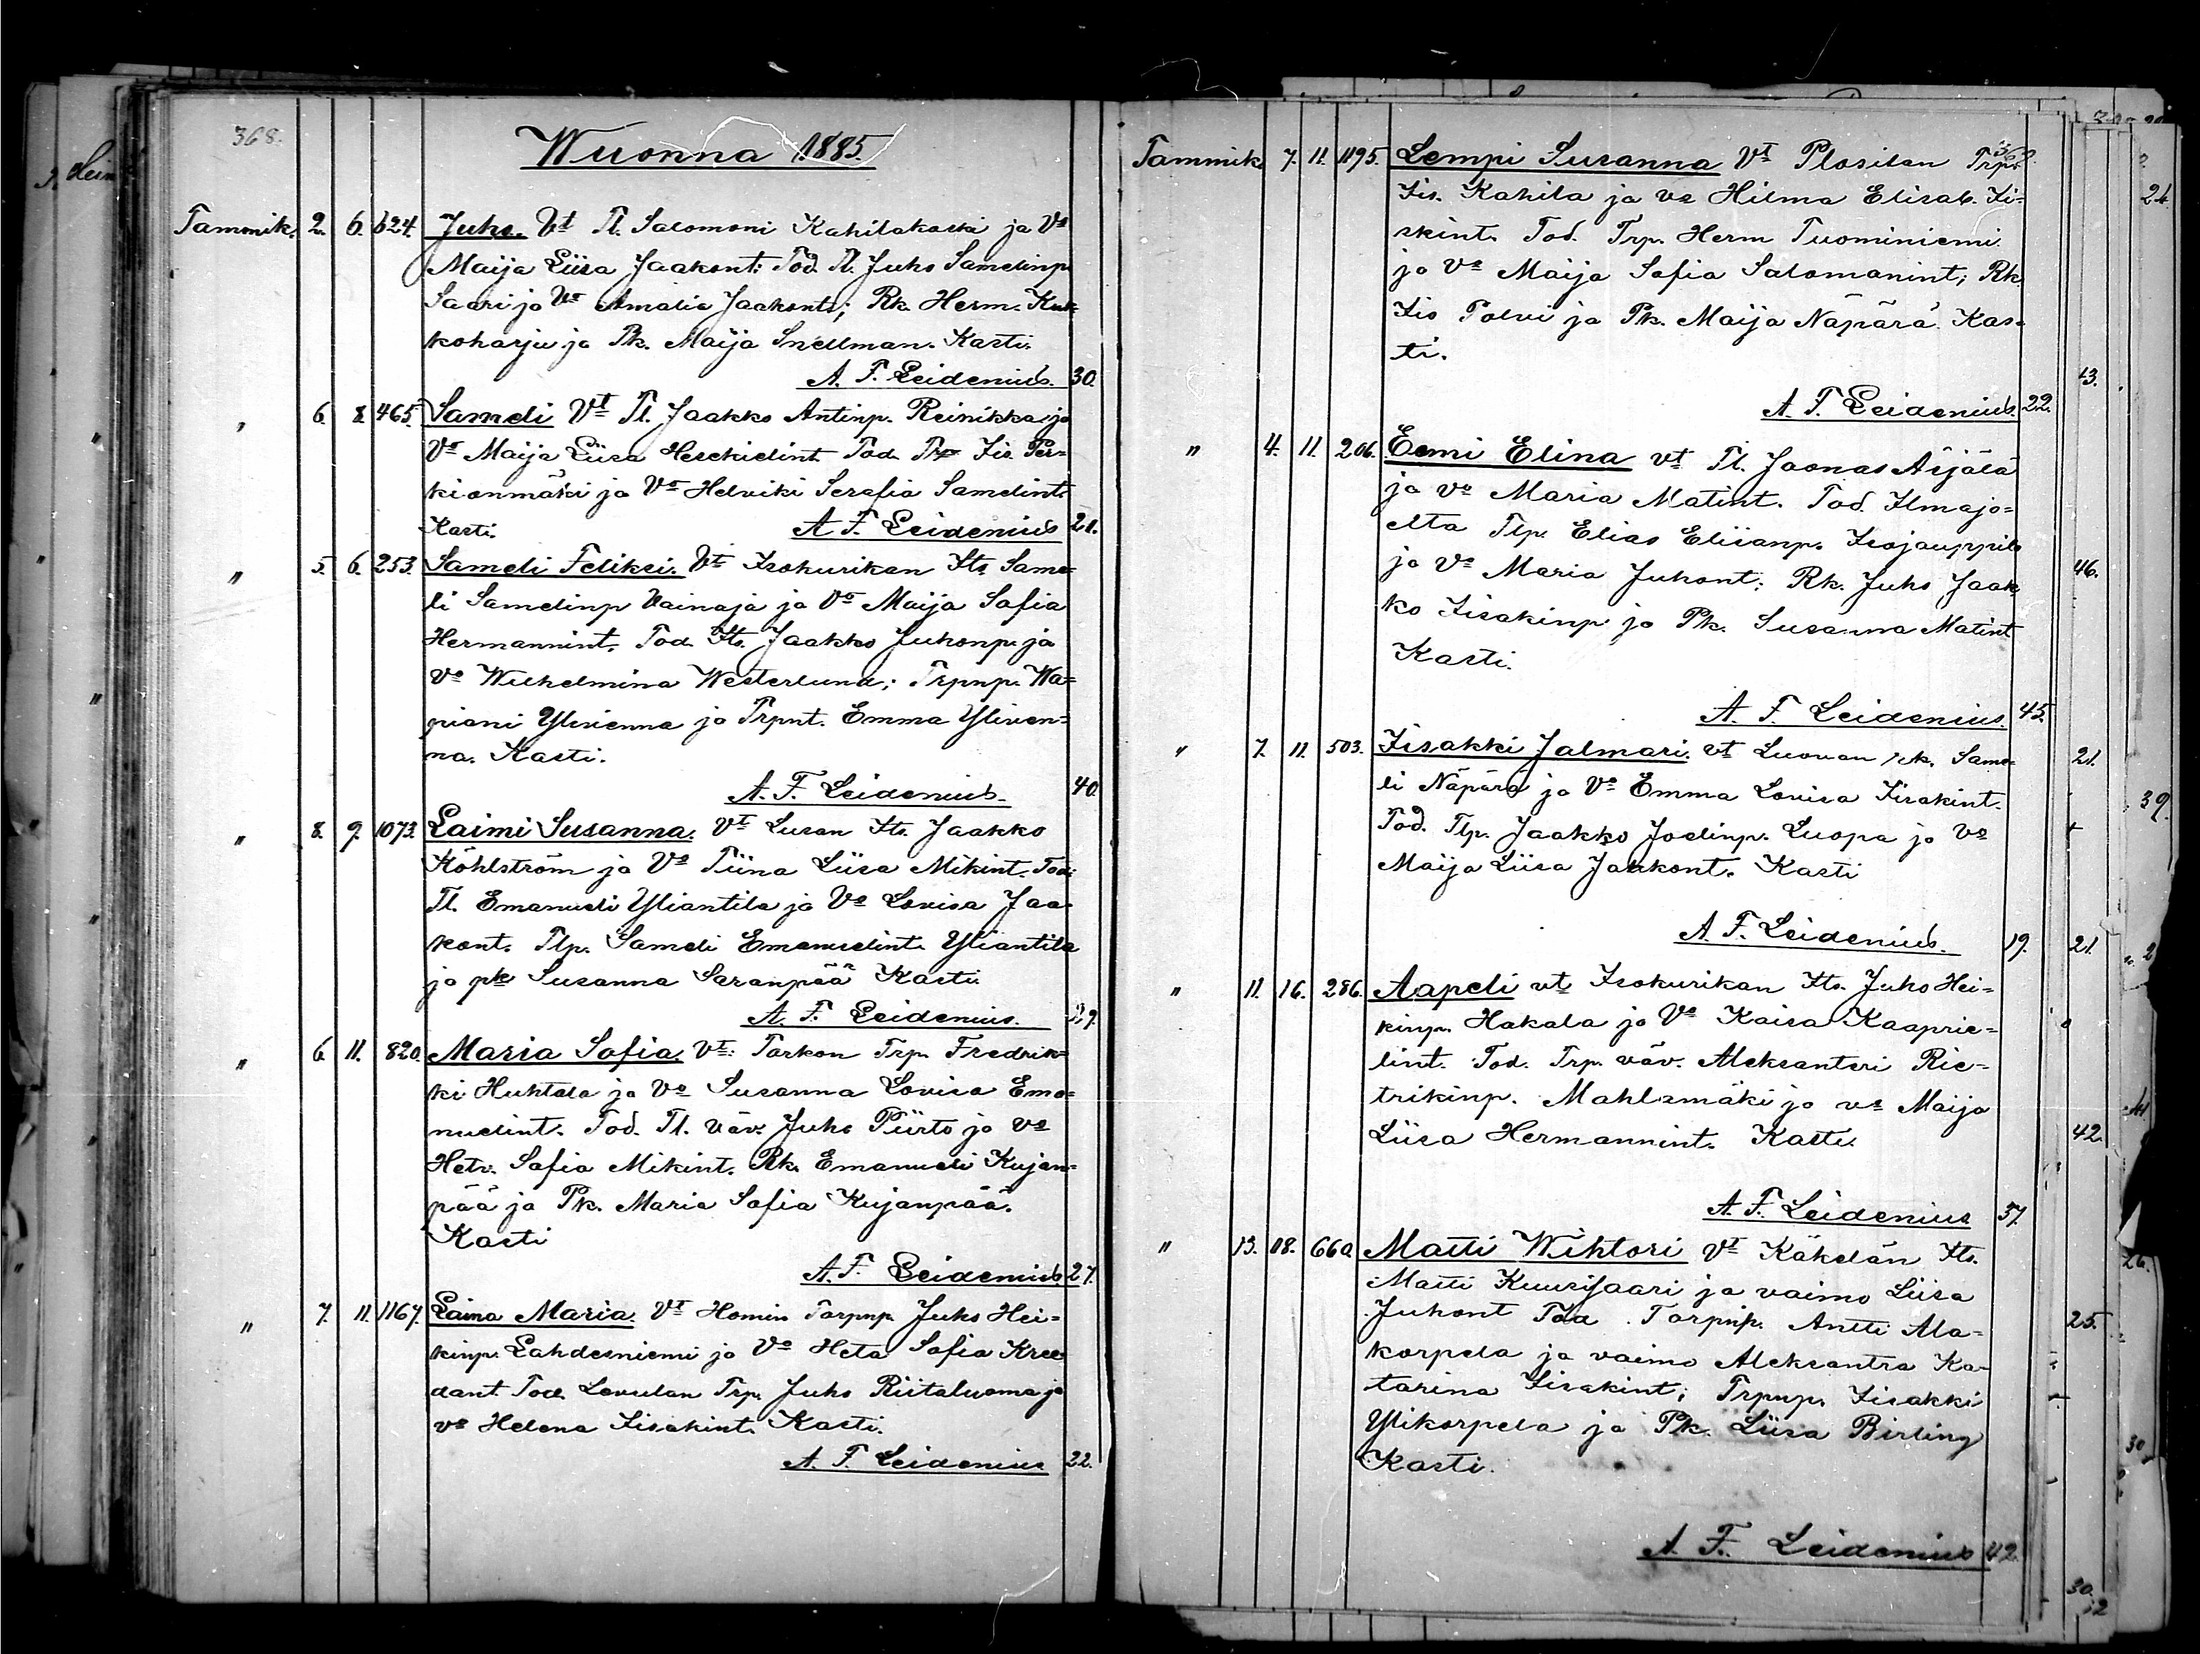 368.
Wuonna 1885.
Tammik. 2. 6. 624. Juho. Vt Tl. Salomoni Kahilakoski ja Vo
Maija Liisa Jaakont: Tod. Tl. Juho Samelinp.
Saari ja Vo Amalia Jaakont; Rk. Herm. Kuk=
koharju ja Pk. Maija Snellman. Kasti.
A. F. Leidenius. 30.
" 6. 8. 465. Sameli Vt Tl. Jaakko Antinp. Reinikka ja
Vo Maija Liisa Hesekielint. Tod. Trp Iis. Per=
kiönmäki ja Vo Helviki Serafia Samelint.
Kasti. A. F. Leidenius 21.
" 5. 6. 253. Sameli Feliksi. Vt Isokurikan Its. Same=
li Samelinp Vainaja ja Vo Maija Sofia
Hermannint. Tod. Its. Jaakko Juhonp. ja
Vo Wilhelmina Westerlund; Trpnp. Wa=
piani Ylivienna ja Trpnt. Emma Ylivien=
na. Kasti.
A. F. Leidenius. 40.
" 8. 9. 1073. Laimi Susanna. Vt Lusan Its. Jaakko
Köhlström ja Vo Tiina Liisa Mikint. Tod.
Tl. Emanueli Yliantila ja Vo Lovisa Jaa=
kont. Tlp. Sameli Emanuelint. Yliantila
ja pk Susanna Saranpää Kasti.
A. F. Leidenius.
" 6. 11. 820. Maria Sofia. Vt: Tarkon Trp. Fredrik=
ki Huhtala ja Vo Susanna Lovisa Ema=
nuelint. Tod. Tl. väv. Juho Piirto ja Vo
Hetv. Sofia Mikint. Rk. Emanueli Kujan=
pää ja Pk. Maria Sofia Kujanpää.
Kasti
A. F. Leidenius 27.
" 7. 11. 1167. Laina Maria. Vt Homin Torpnp. Juho Hei=
kinp. Lahdesniemi ja Vo Heta Sofia Kree=
dant. Tod. Lovulan Trp. Juho Riitaluoma ja
vo Helena Iisakint. Kasti.
A. F. Leidenius 22.
Tammik. 7. 11. 1195. Lempi Susanna Vt Plosilan Trp.
Iis. Kahila ja vo Hilma Elisab. Ii=
skint. Tod. Trp. Herm Tuominiemi.
ja Vo Maija Sofia Salomanint; Rk.
Iis Polvi ja Pk. Maija Näpärä. Kas=
ti.
A. F. Leidenius. 22.
" 4. 11. 206. Eemi Elina vt Tl. Joonas Äijälä
ja vo Maria Matint. Tod. Ilmajo=
elta Tlp. Elias Eliianp. Isojauppila
ja Vo Maria Juhont: Rk. Juho Jaak
ko Iisakinp ja Pk. Susanna Matint
Kasti.
A. F. Leidenius. 45.
" 7. 11. 503. Iisakki Jalmari. vt Luovan rk. Same=
li Näpärä ja Vo Emma Lovisa Iisakint.
Tod. Tlp. Jaakko Joelinp. Luopa ja Vo
Maija Liisa Jaakont. Kasti
A. F. Leidenius. 19.
" 11. 16. 286. Aapeli vt Isokurikan Its. Juho Hei=
kinp. Hakala ja Vo Kaisa Kaaprie=
lint. Tod. Trp. väv. Aleksanteri Rie=
trikinp. Mahlamäki ja vo Maija
Liisa Hermannint. Kasti.
A. F. Leidenius 37.
" 13. 18. 660. Matti Wihtori Vt Käkelän Its.
Matti Kuurisaari ja vaimo Liisa
Juhont Tod. Torpnp. Antti Ala=
korpela ja vaimo Aleksantra Ka=
tarina Iisakint; Trpnp. Iisakki
Ylikorpela ja Pk. Liisa Birling
Kasti.
A. F. Leidenius 42.